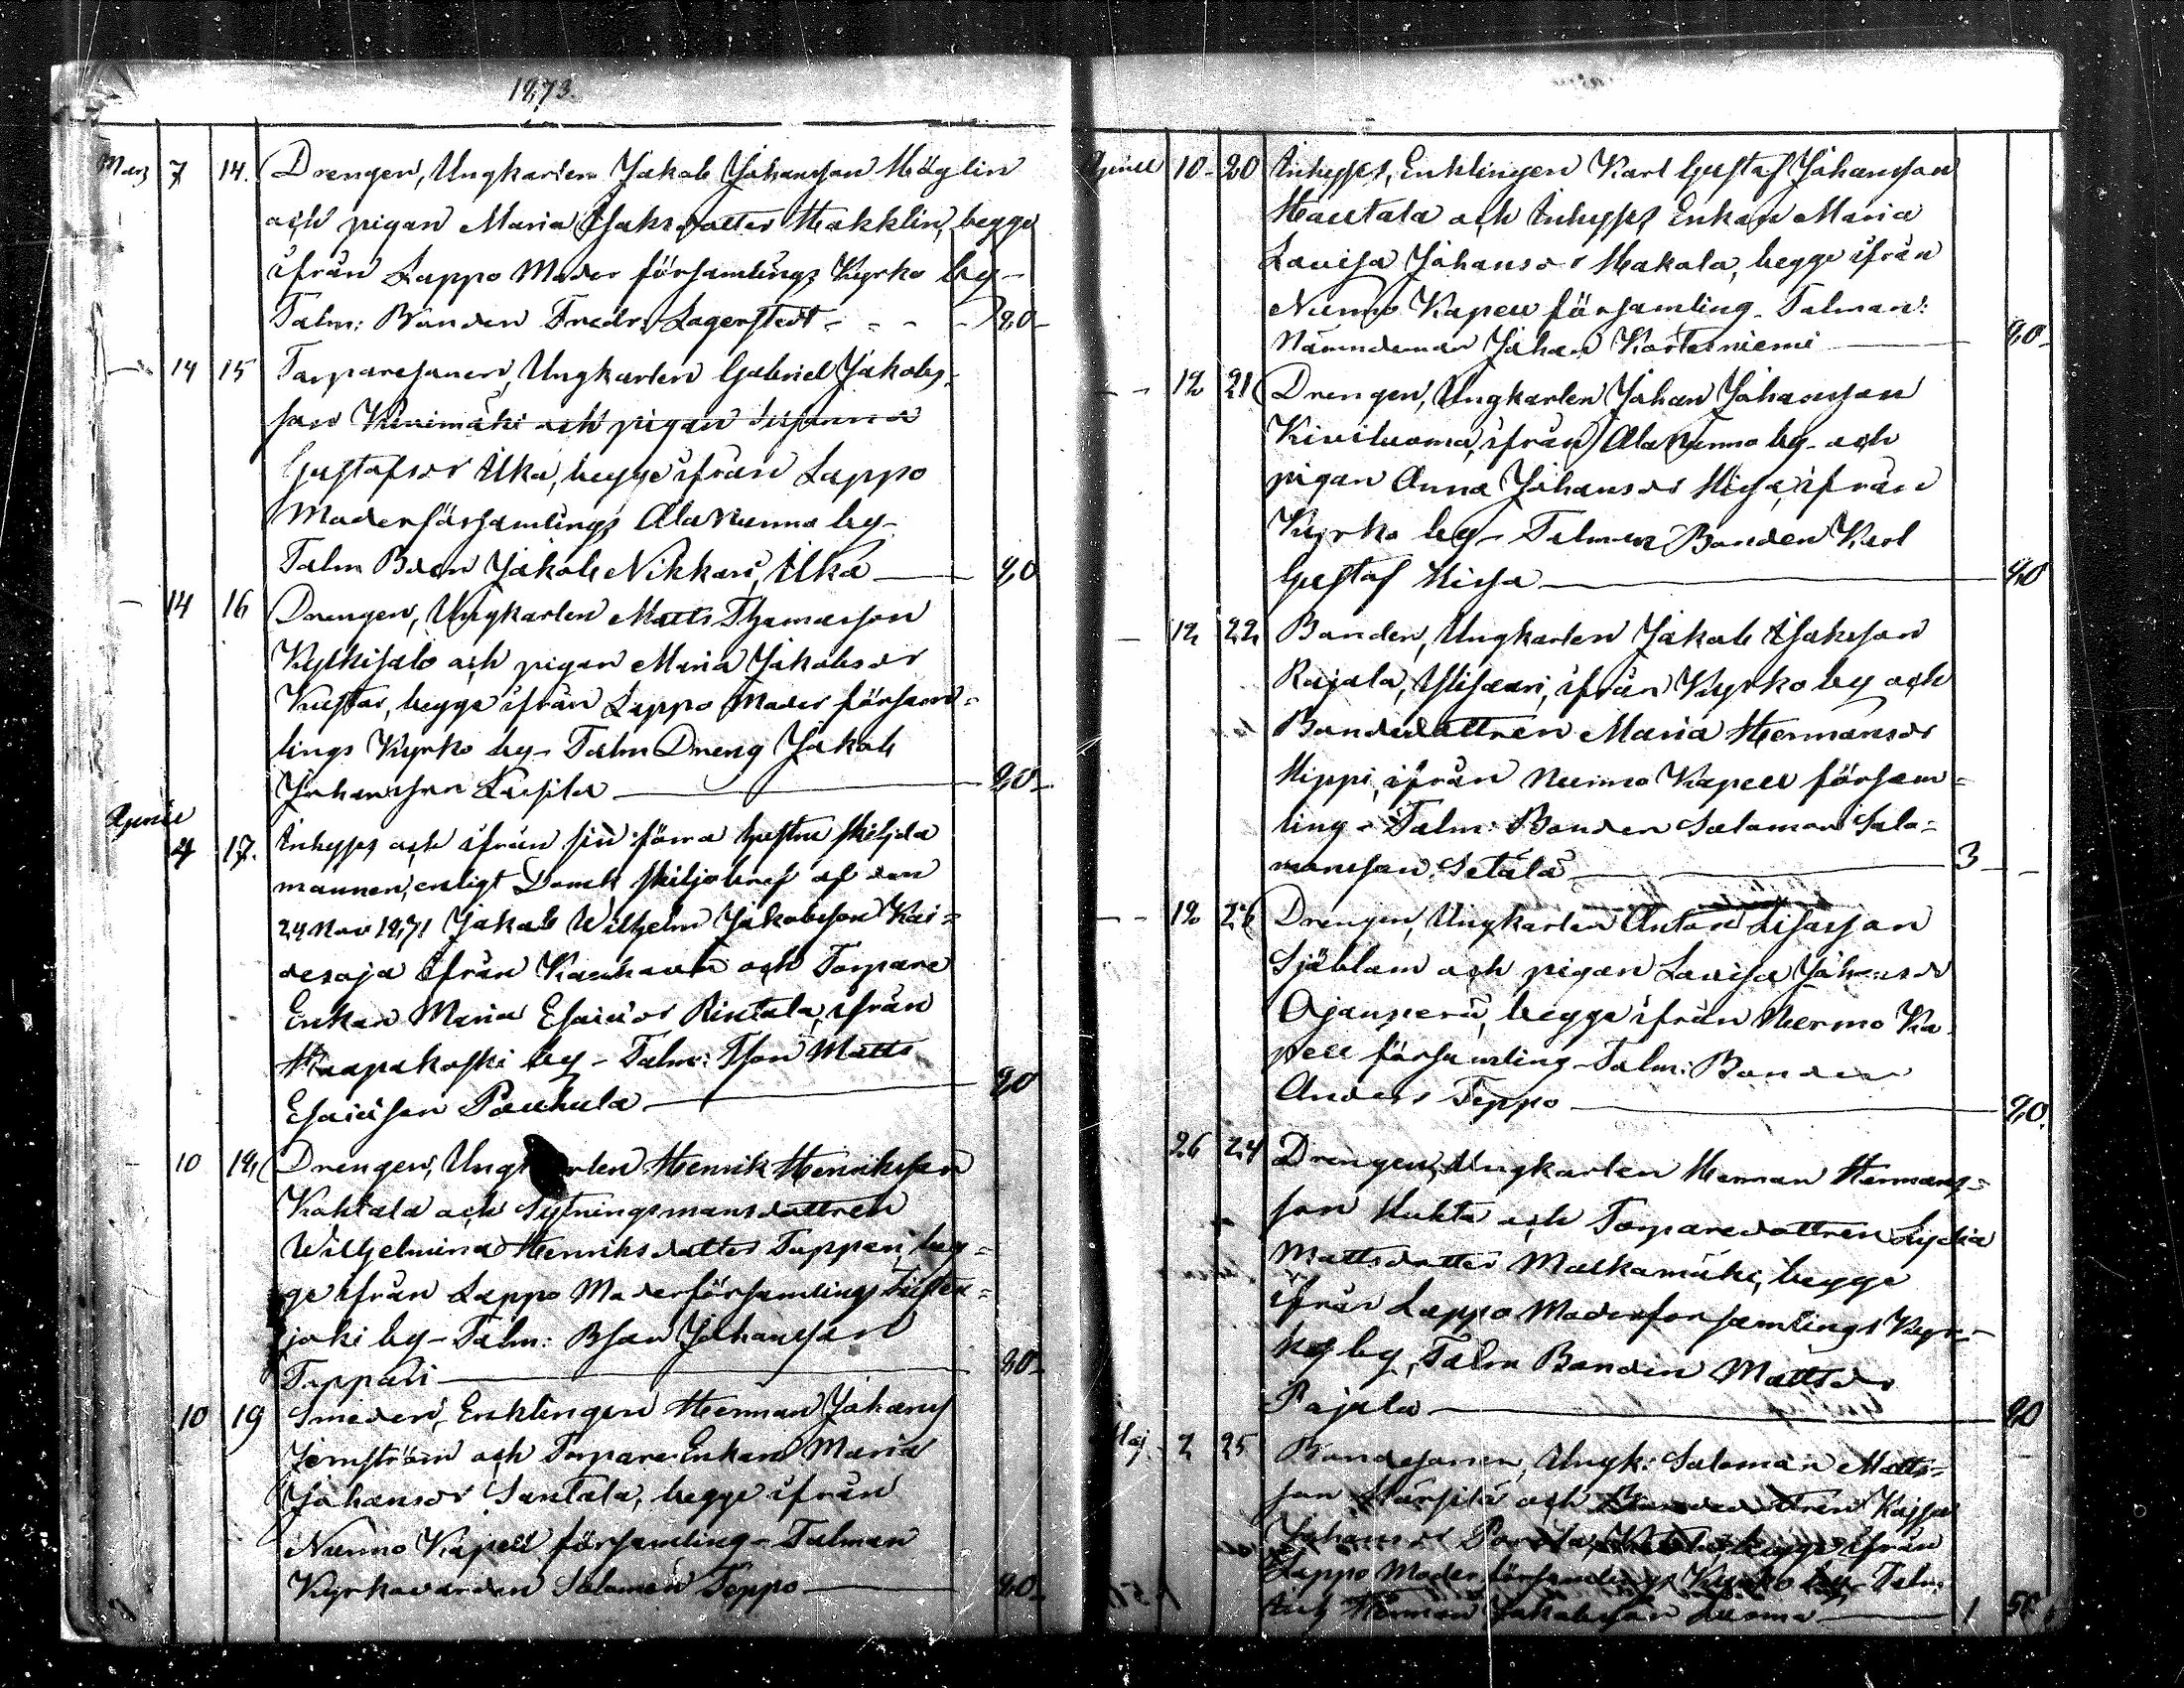 1873.
Mars 7 14. Drengen, Ungkarlen Jakob Johansson Höglin
och pigan Maria Isaksdotter Hakklin, begge
ifrån Lappo Moder församlings Kyrko by-
Talm: Bonden Fredr: Lagerstedt - - - 80-
14 15 Torparesonen, Ungkarlen Gabriel Jakobs-
son Kivimäki och pigan Susanna
Gustafsdr Ilka, begge ifrån Lappo
Moderförsamlings Ala Nurmo by-
Talm Bden Jakob Nikkari, Ilka 80
14 16 Drengen, Ungkarlen Matts Thomasson
Kytkisalo och pigan Maria Jakobsdr
Kustar, begge ifrån Lappo Moder försam-
lings Kyrko by- Talm Dreng Jakob
Johansson Lassila 80-
April
4 17. Inhyses och ifrån sin förra hustru skiljda
mannen, enligt Domk. skiljobref af den
24 Nov 1871 Jakob Wilhelm Jakobsson Kai-
desoja ifrån Kauhava och Torpare
Enkan Maria Esaiædr Rintala, ifrån
Haapakoski by - Talm: Tson Matts
Esaiæson Pouhula 80
10 18 Drengen, Ungkarlen Henrik Henriksson
Kohtala och Sytningsmansdottren
Wilhelmina Henriksdotter Tuppari, beg-
ge ifrån Lappo Moderförsamlings Tiisten-
joki by- Talm: Bson Johansson
Toppari 80-
10 19 Smeden, Enklingen Herman Johans
Jernström och Torpare Enkan Maria
Johansdr Santala, begge ifrån
Nurmo Kapell församling- Talman
Kyrkovärden Salomon Teppo 80-
April 10- 20 Inhyses, Enklingen Karl Gustaf Johansson
Hautala och Inhyses Enkan Maria
Lovisa Johansdr Hakola, begge ifrån
Nurmo Kapell församling- Talman:
Nämndeman Johan Kortesniemi 80-
- - 12 21 Drengen, Ungkarlen Johan Johansson
Kiviluoma, ifrån Ala Nurmo by- och
pigan Anna Johansdr Hissa, ifrån
Kyrko by- Talman Bonden Karl
Gustaf Hissa 80
- 12 22 Bonden, Ungkarlen Jakob Isaksson
Rajala, Ylisaari, ifrån Kyrko by och
Bondedottren Maria Hermansdr
Hippi, ifrån Nurmo Kapell försam-
ling- Talm: Bonden Salomon Salo-
monsson Setälä 3 -
- - 12 23 Drengen, Ungkarlen Anton
Sjöblom och pigan Lovisa Johansdr
Ojanperä, begge ifrån Nurmo Ka-
pell församling- Talm: Bonden
Anders Teppo 80.
26 24 Drengen, Ungkarlen Herman Hermans-
son Huhta och Torparedottren Lydia
Mattsdotter Malkamäki, begge
ifrån Lappo Moderförsamlings Kyr-
ko by, Talm Bonden Mattsdr
Pajula 80
Maj 2 25 Bondesonen, Ungk: Salomon Matts-
son Härsilä och Bondedottren Kajsa
Johansdr begge ifrån
Lappo Moder församlings Kyrko by- Talm:
Herman Jakobsson Luoma 1 50